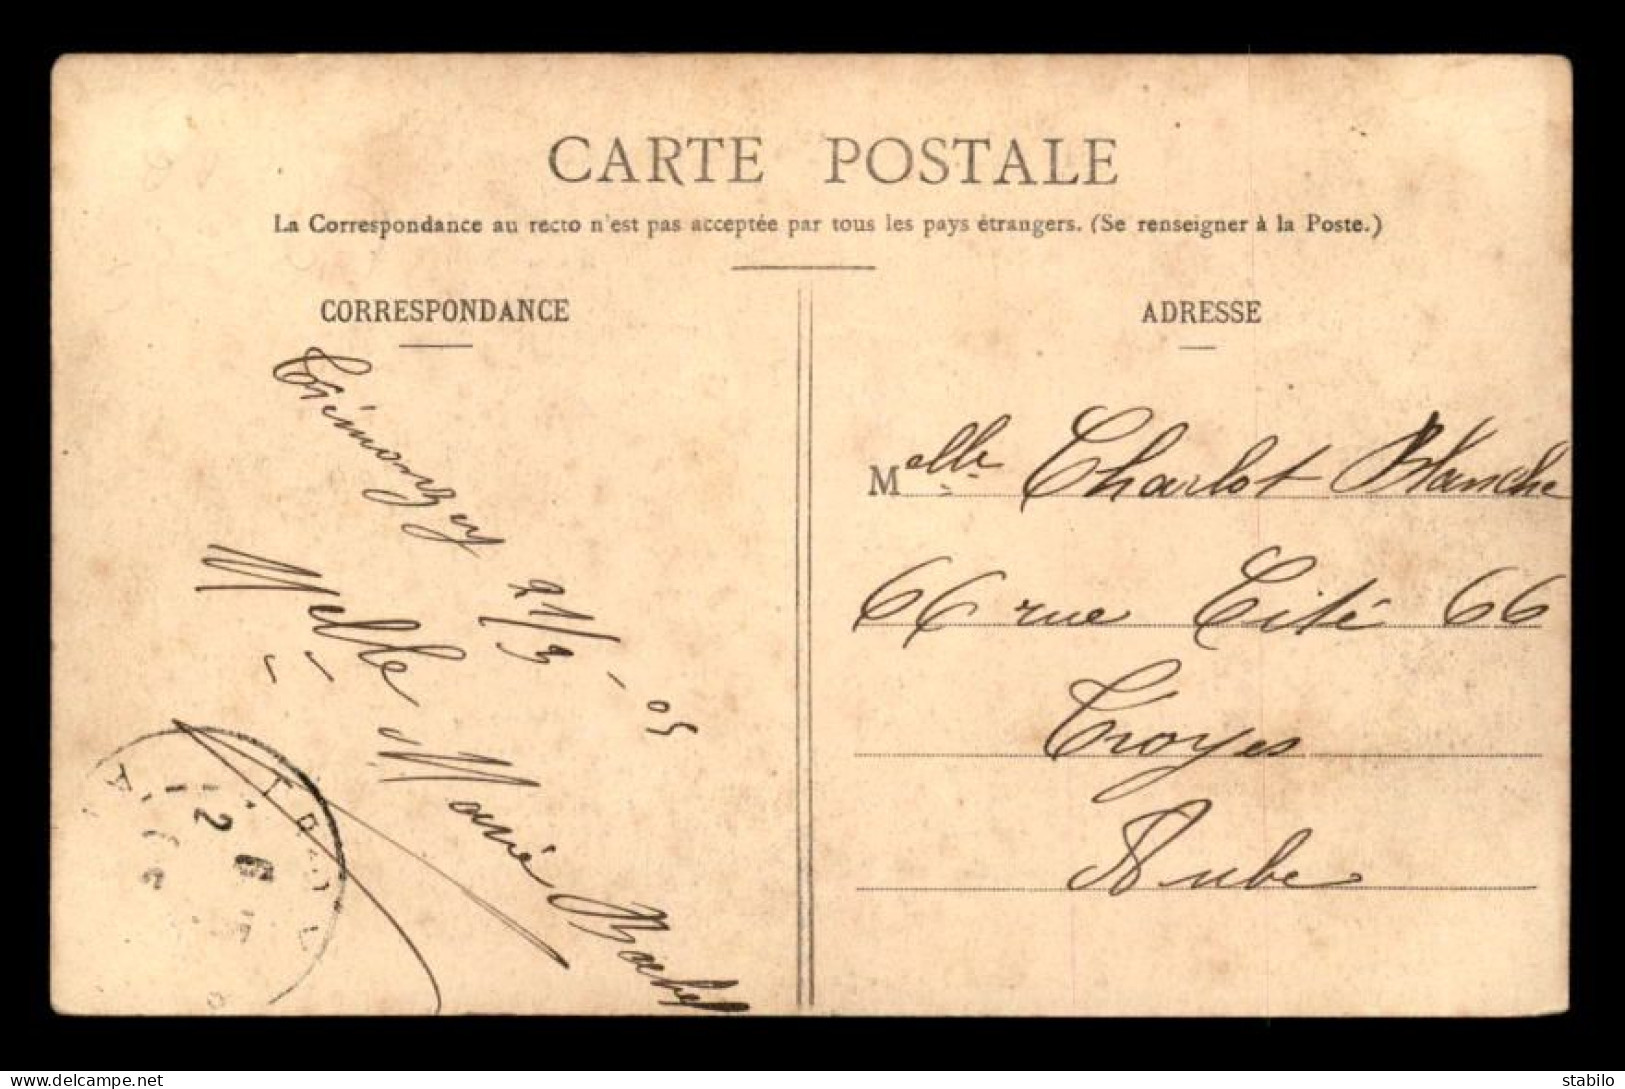 CARTE POSTALE
La Correspondance au recto n'est pas acceptée par tous les pays étrangers. (Se renseigner à la Poste.)
CORRESPONDANCE
Trémonzey
21/3 - 05
Melle Marie
ADRESSE
Melle Charlot Blanche
66 rue Cité 66
Troyes
Aube
delcampe.net
stabilo